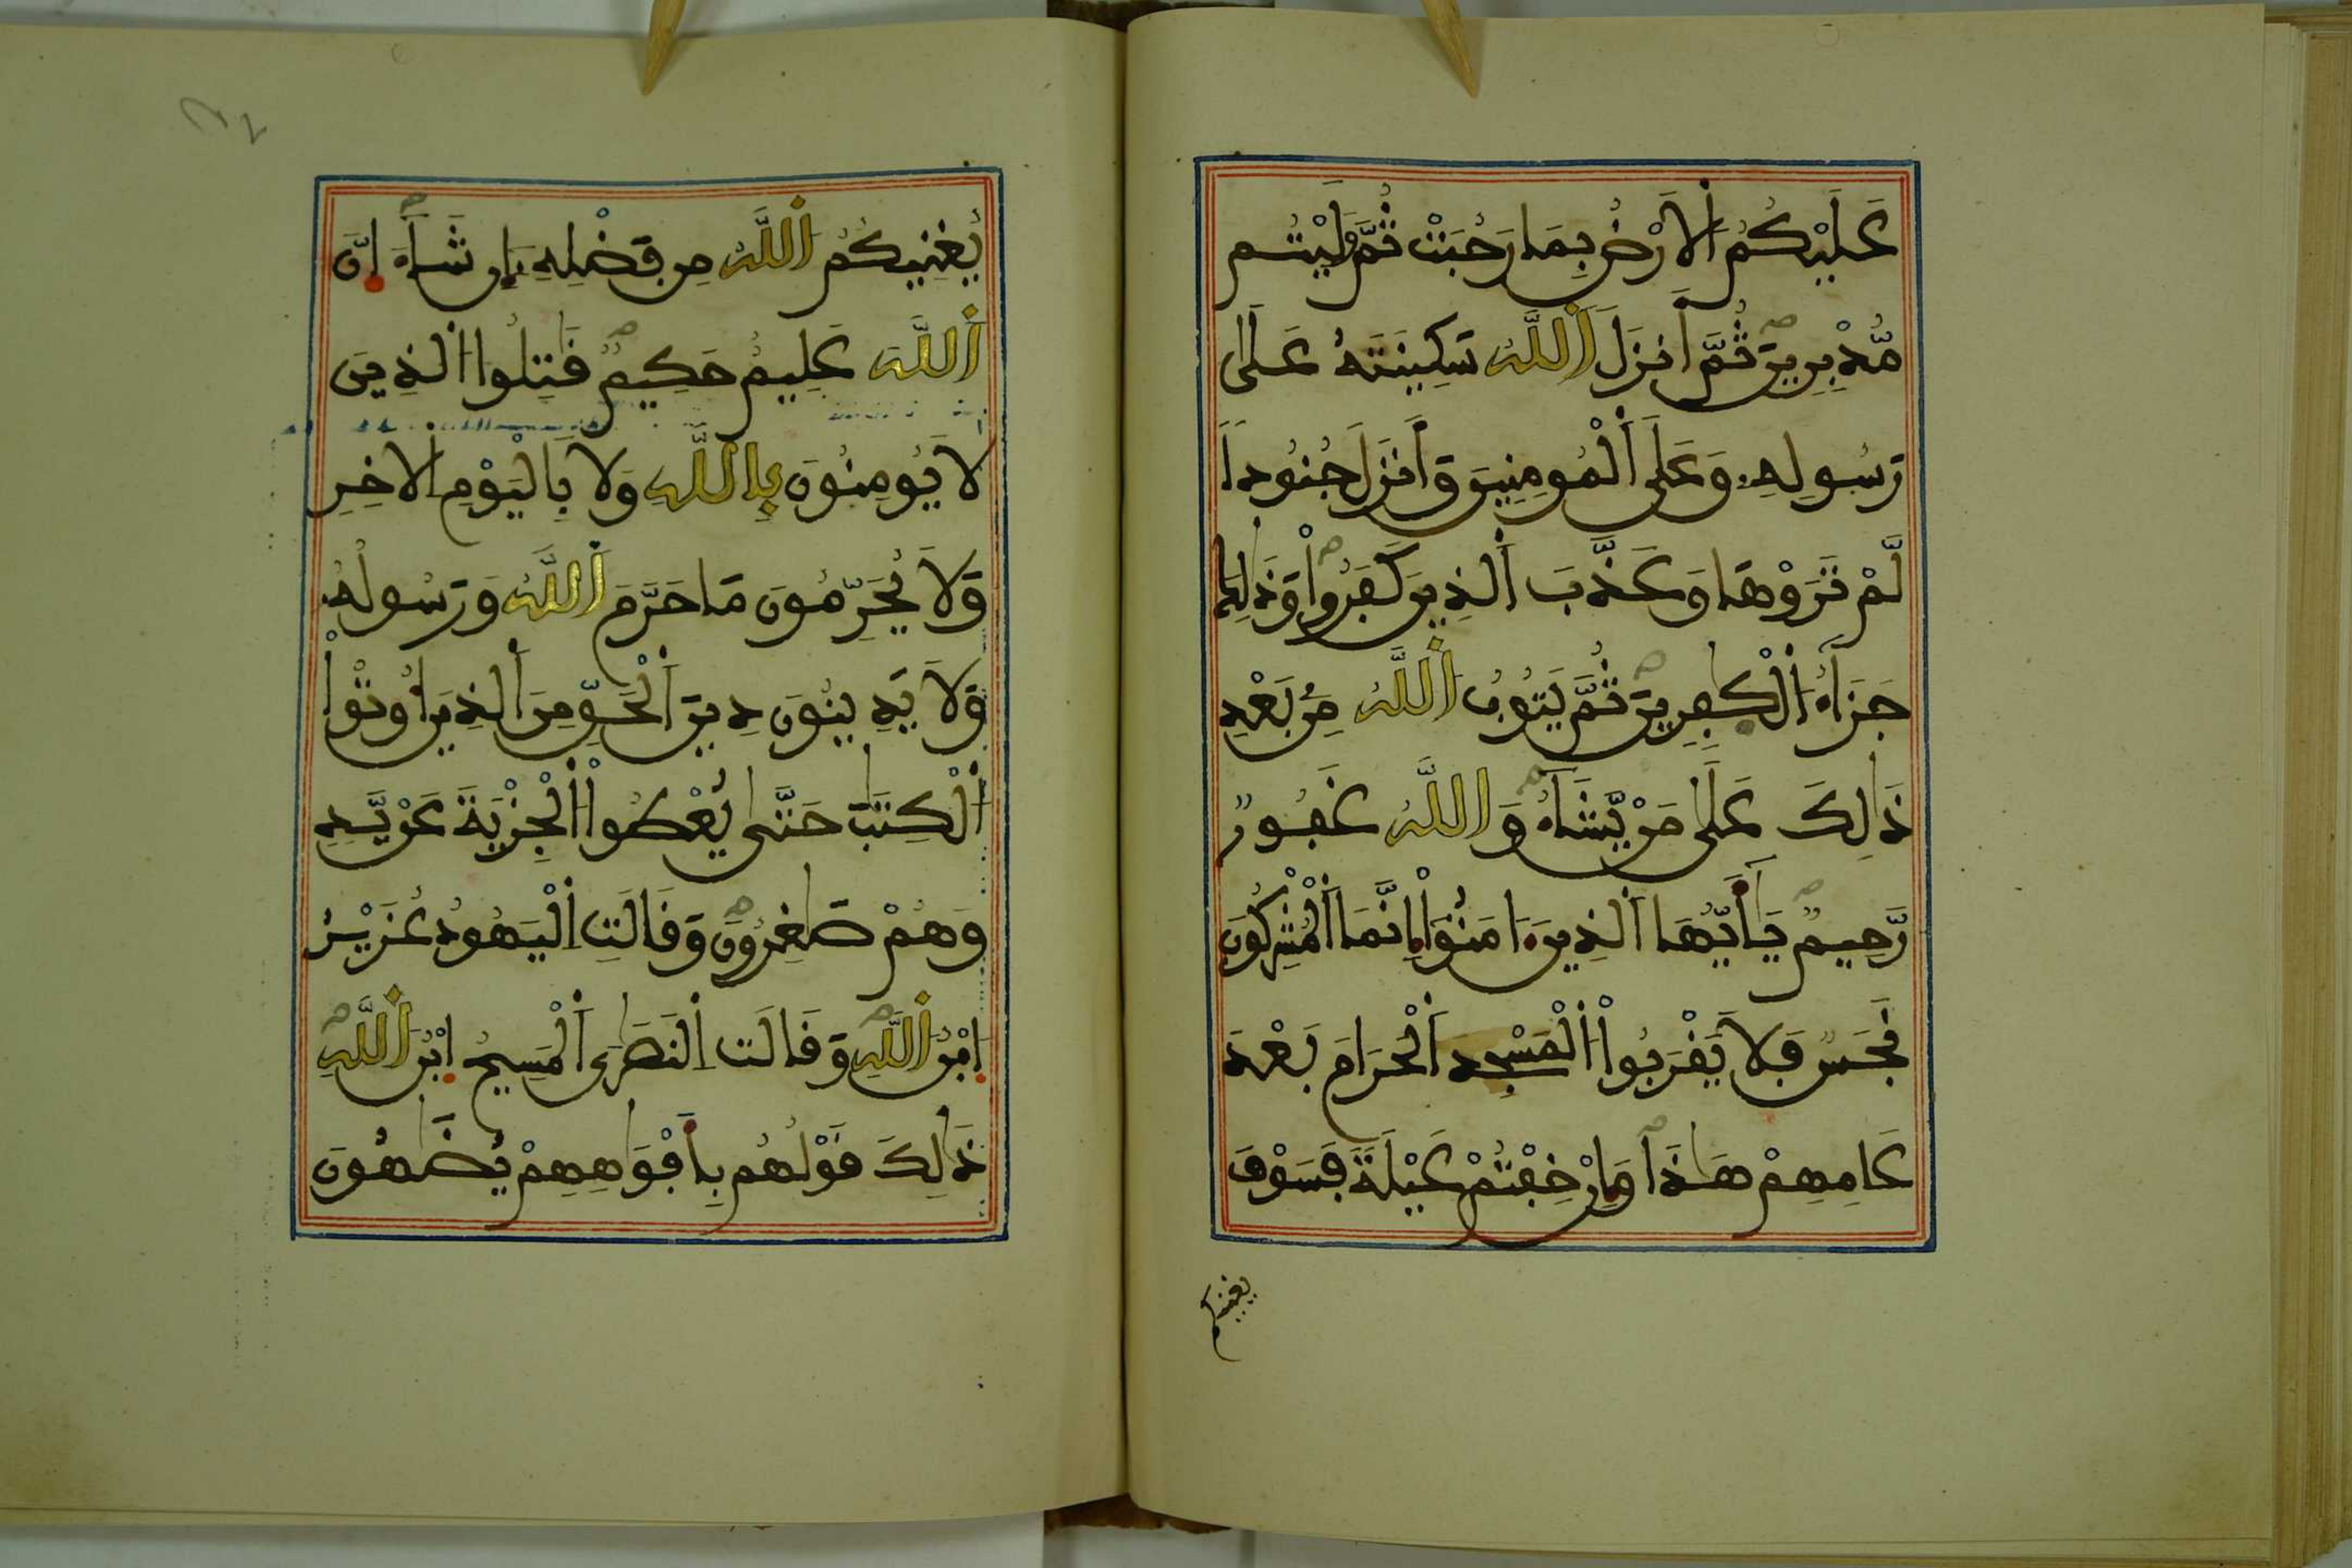 عَلَيْكُمُ الَارْضُ بِمَا رَحُبَتْ ثُمَّ وَلَّيْتُم
مُّدْبِرِينَ ثُمَّ أَنزَلَ اَللَّهُ سَكِينَتَهُ عَلَىٰ
رَسُولِهِ وَعَلَى اَلْمُومِنِينَ وَأَنزَلَ جُنُوداً
لَّمْ تَرَوْهَا وَعَذَّبَ اَلذِينَ كَفَرُواْ وَذَٰلِكَ
جَزَآءُ اُلْكٰفِرِينَ ثُمَّ يَتُوبُ اُللَّهُ مِنۢ بَعْدِ
ذَٰلِكَ عَلَىٰ مَنْ يَّشَآءُ وَاللَّهُ غَفُورٌ
رَّحِيمٌ يَٰأَيُّهَا اَلذِينَ ءَامَنُوٓاْ إِنَّمَا اَلْمُشْرِكُونَ
نَجَسٌ فَلَا يَقْرَبُواْ اُلْمَسْجِدَ اَلْحَرَامَ بَعْدَ
عَامِهِمْ هَٰذَا وَإِنْ خِفْتُمْ عَيْلَةً فَسَوْفَ
يغنيكم
يُغْنِيكُمُ اُللَّهُ مِن فَضْلِهِ إِن شَآءَ إِنَّ
اَللَّهَ عَلِيمٌ حَكِيمٌ قَٰتِلُوا اُلذِينَ
لَا يُومِنُونَ بِاللَّهِ وَلَا بِالْيَوْمِ اِلَاخِرِ
وَلَا يُحَرِّمُونَ مَا حَرَّمَ اَللَّهُ وَرَسُولُهُ
وَلَا يَدِينُونَ دِينَ اَلْحَقِّ مِنَ اَلذِينَ أُوتُواْ
اُلْكِتَٰبَ حَتَّىٰ يُعْطُواْ اُلْجِزْيَةَ عَنْ يَّدٍ
وَهُمْ صَٰغِرُونَ وَقَالَتِ اِلْيَهُودُ عُزَيْرُ
اِبْنُ اُللَّهِ وَقَالَتِ اِلنَّصَٰرَى اَلْمَسِيحُ اِبْنُ اُللَّهِ
ذَٰلِكَ قَوْلُهُم بِأَفْوَٰهِهِمْ يُضَٰهُونَ